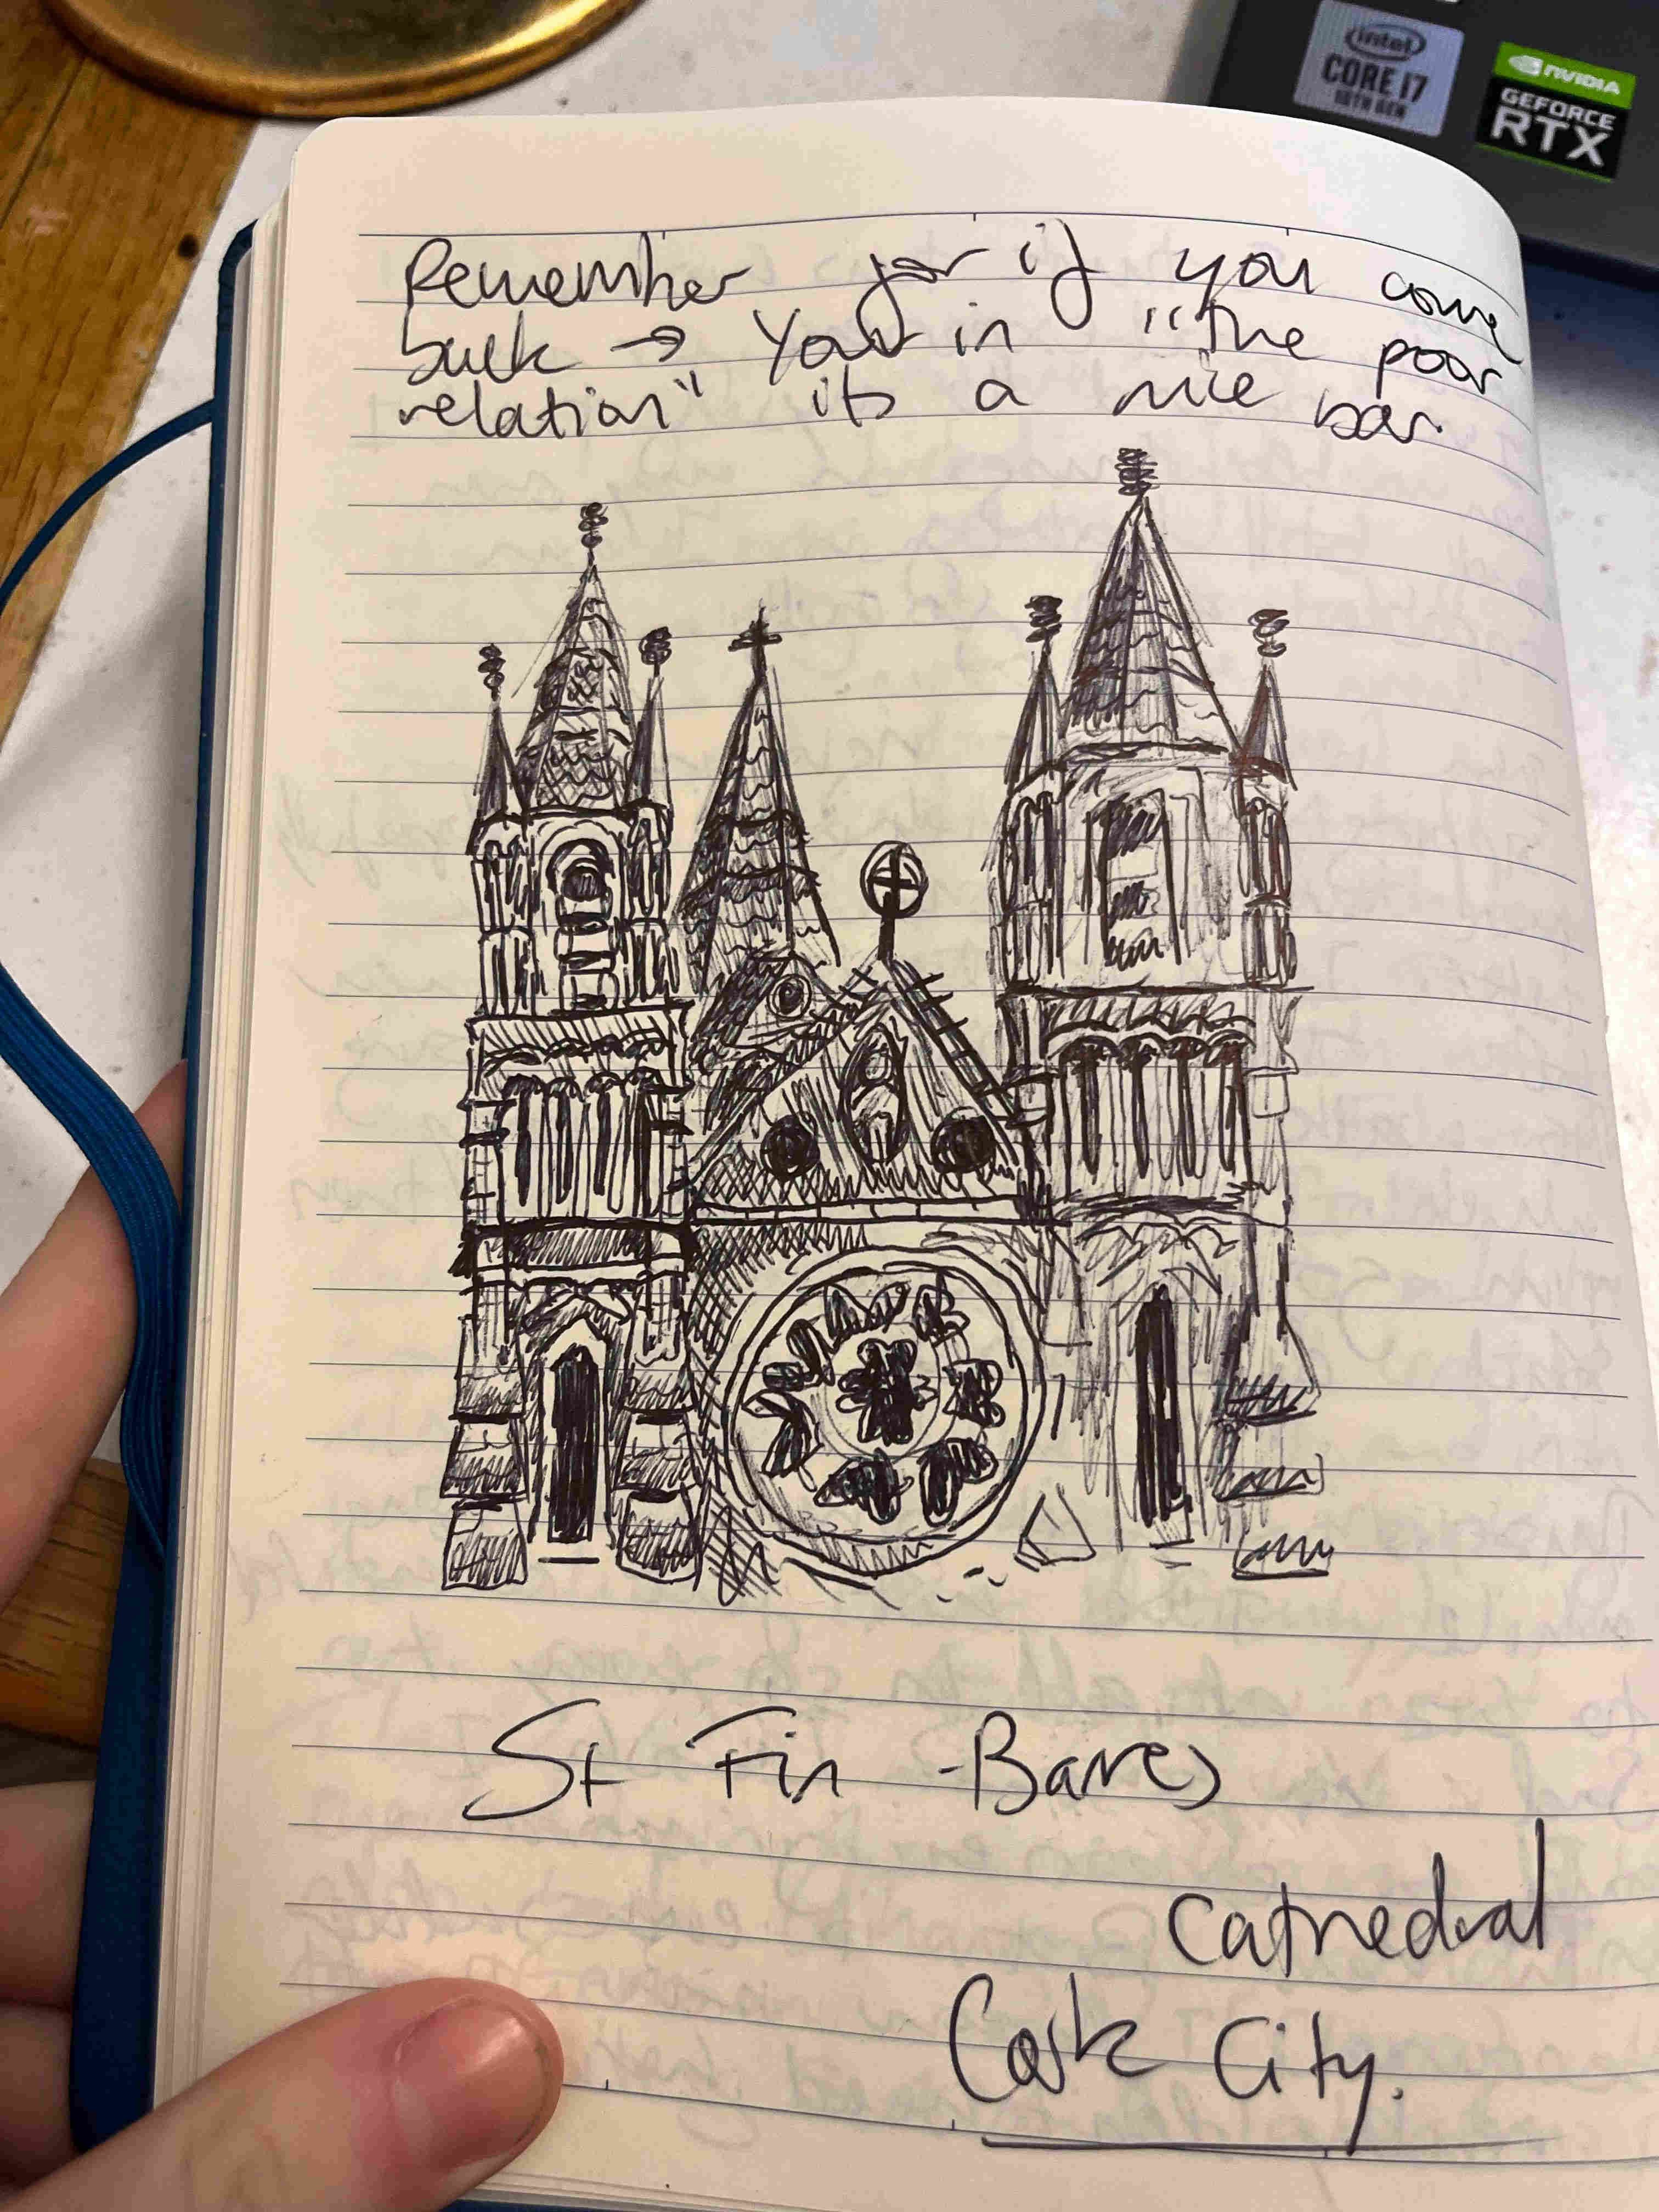 intel
CORE i7
10TH GEN
NVIDIA
GEFORCE
RTX
Remember for if you come
back → Your in "the poor
relation" its a nice bar.
St Fin - Barres
Cathedral
Cork City.